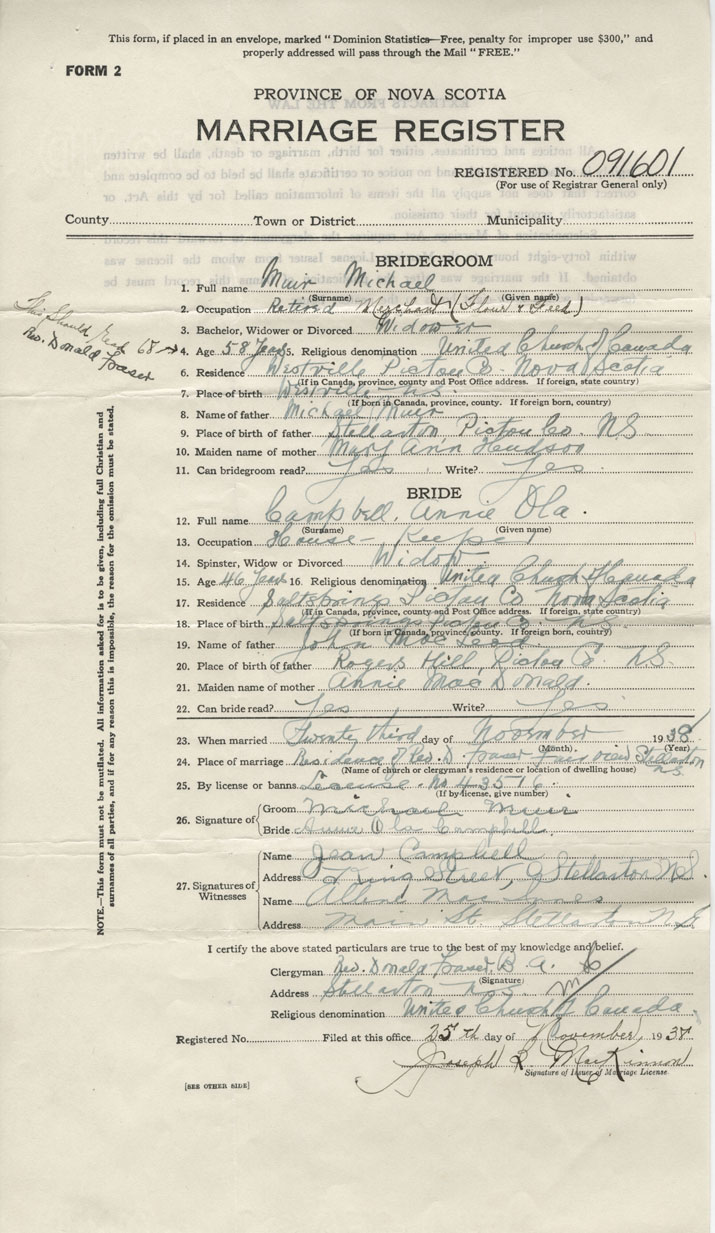 This form, if placed in an envelope, marked "Dominion Statistics—Free, penalty for improper use $300," and
properly addressed will pass through the Mail "FREE."
FORM 2
PROVINCE OF NOVA SCOTIA
MARRIAGE REGISTER
REGISTERED No. 091601
(For use of Registrar General only)
County Town or District Municipality
BRIDEGROOM
1. Full name Muir Michael
(Surname) (Given name)
2. Occupation Retired Merchant (Flour & Feed)
3. Bachelor, Widower or Divorced Widower
This Should Read 68 →
Rev. Donald Fraser
4. Age 58 Years 5. Religious denomination United Church of Canada
6. Residence Westville Pictou Co. Nova Scotia
(If in Canada, province, county and Post Office address. If foreign, state country)
7. Place of birth Westville N.S.
(If born in Canada, province, county. If foreign born, country)
8. Name of father Michael Muir
9. Place of birth of father Stellarton Pictou Co. N.S.
10. Maiden name of mother Mary Ann Hudson
11. Can bridegroom read? Yes Write? Yes
BRIDE
12. Full name Campbell, Annie Ola.
(Surname) (Given name)
13. Occupation House-Keeper
14. Spinster, Widow or Divorced Widow
15. Age 46 Years 16. Religious denomination United Church of Canada
17. Residence Saltsprings Pictou Co. Nova Scotia
(If in Canada, province, county and Post Office address. If foreign, state country)
18. Place of birth Saltsprings Pictou Co. N.S.
(If born in Canada, province, county. If foreign born, country)
19. Name of father John MacLeod
20. Place of birth of father Rogers Hill, Pictou Co. N.S.
21. Maiden name of mother Annie MacDonald.
22. Can bride read? Yes Write? Yes
23. When married Twenty third day of November 1938
(Month) (Year)
24. Place of marriage Residence of Rev. D. Fraser Fairview Stellarton N.S.
(Name of church or clergyman's residence or location of dwelling house)
25. By license or banns License. No 43576.
(If by license, give number)
26. Signature of
Groom Michael Muir
Bride Annie Ola Campbell.
27. Signatures of Witnesses
Name Jean Campbell
Address King Street, Stellarton N.S.
Name MacInnes
Address Main St. Stellarton N.S.
NOTE.—This form must not be mutilated. All information asked for is to be given, including full Christian and
surnames of all parties, and if for any reason this is impossible, the reason for the omission must be stated.
I certify the above stated particulars are true to the best of my knowledge and belief.
Clergyman Rev. Donald Fraser, B.A.
(Signature)
Address Stellarton N.S.
Religious denomination United Church of Canada.
Registered No. Filed at this office 25th day of November, 1938
Joseph MacKinnon
Signature of Issuer of Marriage License.
[SEE OTHER SIDE]